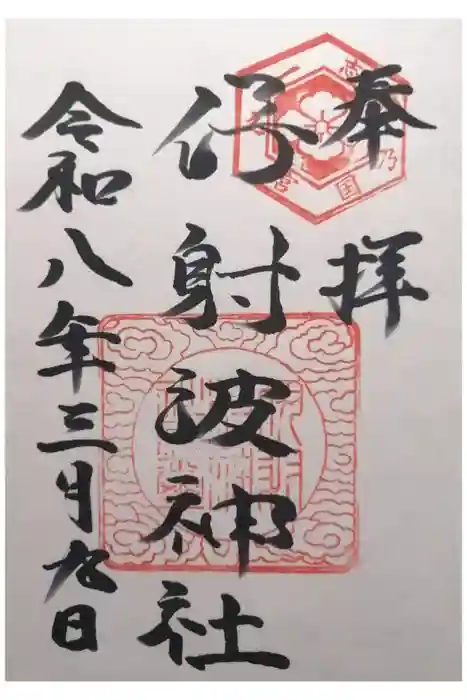 奉拝
伊射波神社
令和八年三月九日
乃国
宮